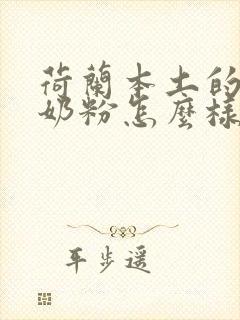 荷蘭本土的
奶粉怎麼樣
平步遥